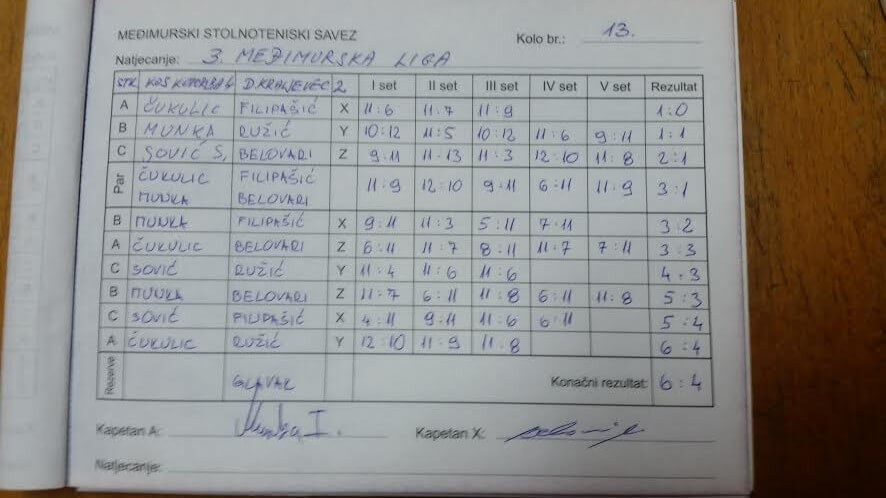 MEĐIMURSKI STOLNOTENISKI SAVEZ Kolo br.: 13.
Natjecanje: 3. MEĐIMURSKA LIGA
STK D.KRALJEVEC 2 I set II set III set IV set V set Rezultat
A ČUKULIC FILIPAŠIĆ X 11:6 11:7 11:9 1:0
B MUNKA RUŽIĆ Y 10:12 11:5 10:12 11:6 9:11 1:1
C SOVIĆ S. BELOVARI Z 9:11 11:13 11:3 12:10 11:8 2:1
Par ČUKULIC FILIPAŠIĆ 11:9 12:10 9:11 6:11 11:9 3:1
MUNKA BELOVARI
B MUNKA FILIPAŠIĆ X 9:11 11:3 5:11 7:11 3:2
A ČUKULIC BELOVARI Z 6:11 11:7 8:11 11:7 7:11 3:3
C SOVIĆ RUŽIĆ Y 11:4 11:6 11:6 4:3
B MUNKA BELOVARI Z 11:7 6:11 11:8 6:11 11:8 5:3
C SOVIĆ FILIPAŠIĆ X 4:11 9:11 11:6 6:11 5:4
A ČUKULIC RUŽIĆ Y 12:10 11:9 11:8 6:4
Rezerve GLAVAK Konačni rezultat: 6:4
Kapetan A: Munka I. Kapetan X:
Natjecanje: